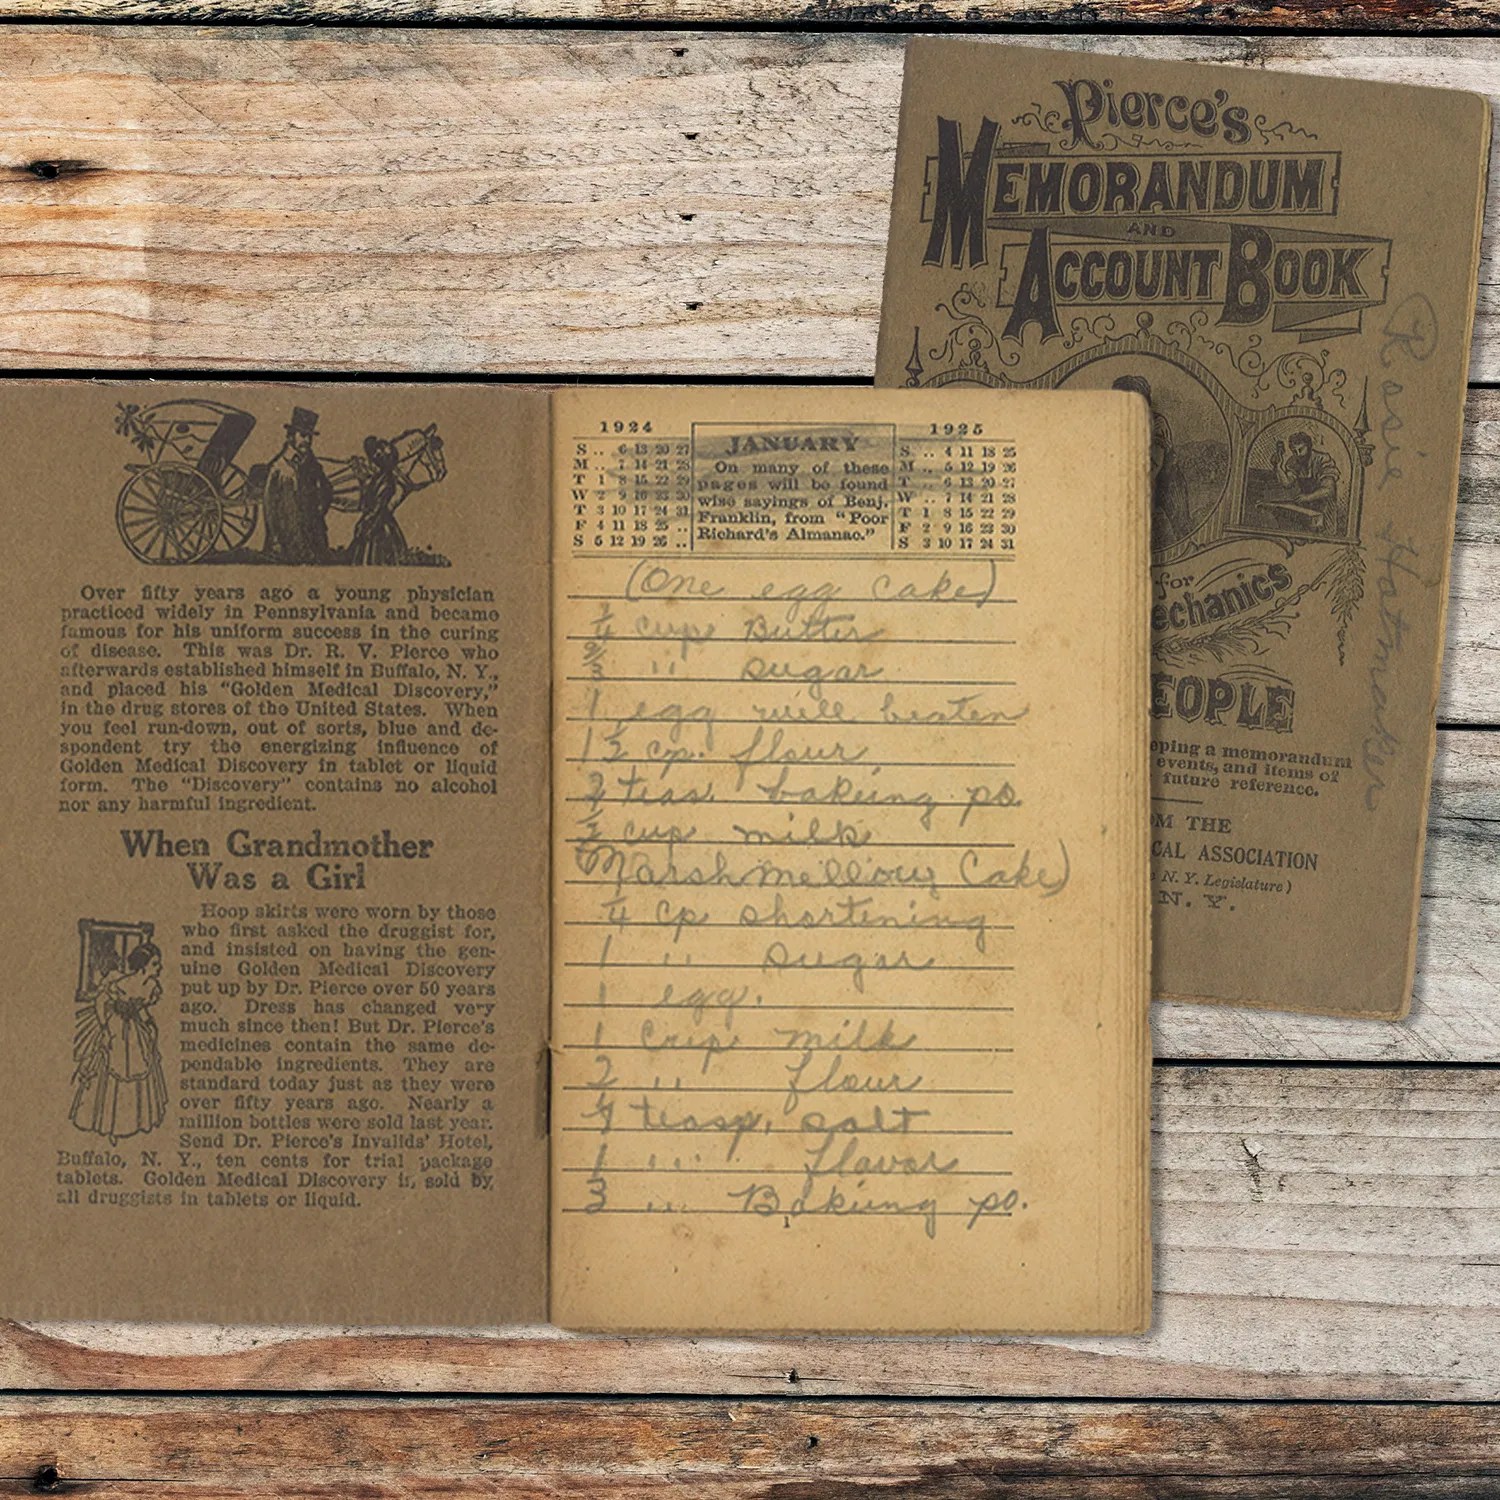 Pierce's
MEMORANDUM
AND
ACCOUNT BOOK
Rosie Hatmaker
for
echanics
EOPLE
eping a memorandum
events, and items of
future reference.
M THE
CAL ASSOCIATION
N. Y. Legislature)
N. Y.
Over fifty years ago a young physician
practiced widely in Pennsylvania and became
famous for his uniform success in the curing
of disease. This was Dr. R. V. Pierce who
afterwards established himself in Buffalo, N. Y.,
and placed his "Golden Medical Discovery,"
in the drug stores of the United States. When
you feel run-down, out of sorts, blue and de-
spondent try the energizing influence of
Golden Medical Discovery in tablet or liquid
form. The "Discovery" contains no alcohol
nor any harmful ingredient.
When Grandmother
Was a Girl
Hoop skirts were worn by those
who first asked the druggist for,
and insisted on having the gen-
uine Golden Medical Discovery
put up by Dr. Pierce over 50 years
ago. Dress has changed very
much since then! But Dr. Pierce's
medicines contain the same de-
pendable ingredients. They are
standard today just as they were
over fifty years ago. Nearly a
million bottles were sold last year.
Send Dr. Pierce's Invalids' Hotel,
Buffalo, N. Y., ten cents for trial package
tablets. Golden Medical Discovery is sold by
all druggists in tablets or liquid.
1924
S .. 6 13 20 27
M .. 7 14 21 28
T 1 8 15 22 29
W 2 9 16 23 30
T 3 10 17 24 31
F 4 11 18 25 ..
S 5 12 19 26 ..
JANUARY
On many of these
pages will be found
wise sayings of Benj.
Franklin, from "Poor
Richard's Almanac."
1925
S .. 4 11 18 25
M .. 5 12 19 26
T .. 6 13 20 27
W .. 7 14 21 28
T 1 8 15 22 29
F 2 9 16 23 30
S 3 10 17 24 31
(One egg cake)
1/4 cup Butter
2/3 " sugar
1 egg well beaten
1 1/2 cp. flour
2 teas. bakeing po.
1/2 cup milk
(Marshmellow Cake)
1/4 cp shortening
1 " sugar
1 egg.
1 cup milk
2 " flour
1/4 teasp. salt
1 " flavor
3 " Bakeing po.
1